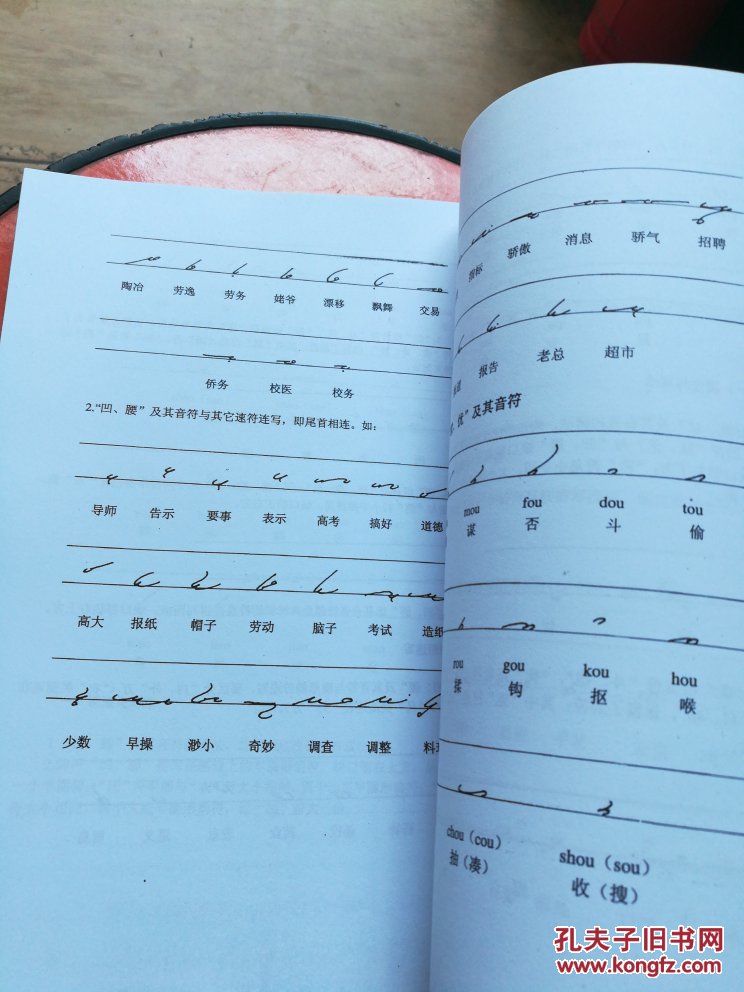 陶冶 劳逸 劳务 姥爷 漂移 飘舞 交易
侨务 校医 校务
2.“凹、腰”及其音符与其它速符连写，即尾首相连。如：
导师 告示 要事 表示 高考 搞好 道德
高大 报纸 帽子 劳动 脑子 考试 造纸
少数 早操 渺小 奇妙 调查 调整
指标 骄傲 消息 骄气 招聘
报告 老总 超市
优”及其音符
mou fou dou tou
谋 否 斗 偷
rou gou kou hou
揉 钩 抠 喉
chou（cou） shou（sou）
抽（凑） 收（搜）
孔夫子旧书网
www.kongfz.com